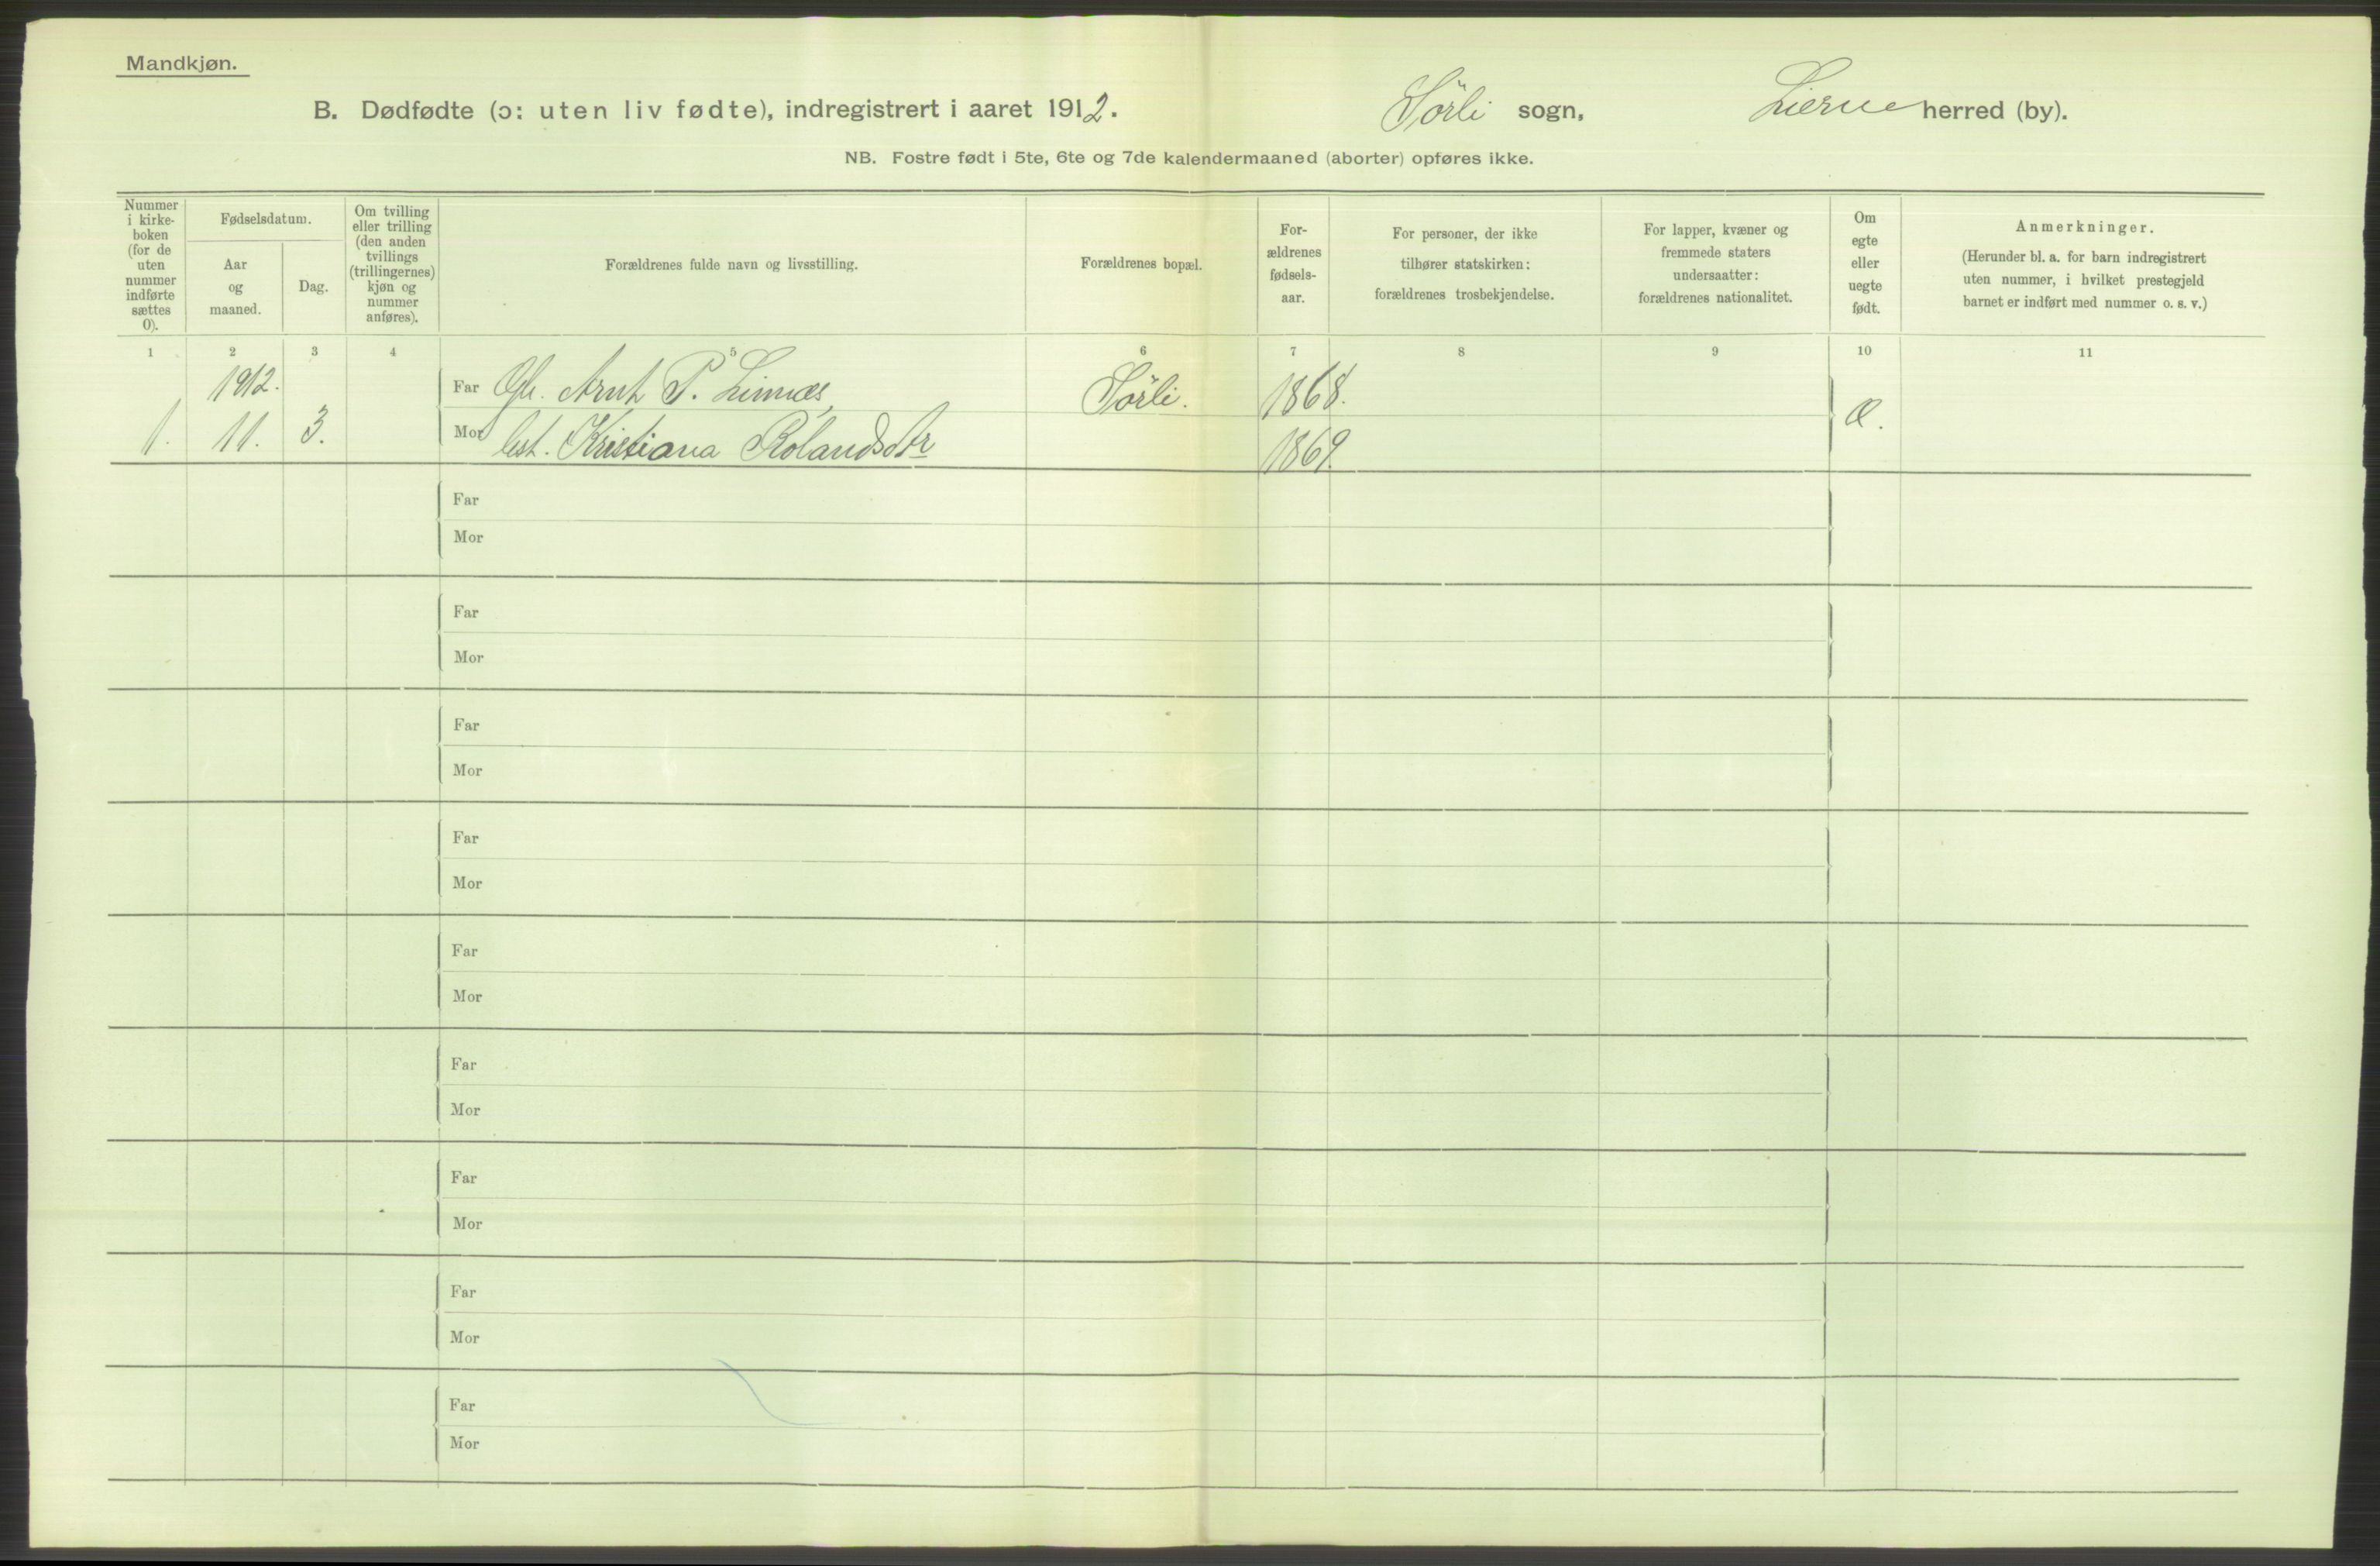 Mandkjøn.
B. Dødfødte (ɔ: uten liv fødte), indregistrert i aaret 1912. Sörli sogn, Lierne herred (by).
NB. Fostre født i 5te, 6te og 7de kalendermaaned (aborter) opføres ikke.
Nummer
i kirke-
boken
(for de
uten
nummer
indførte
sættes
0).
Fødselsdatum.
Aar
og
maaned.
Dag.
Om tvilling
eller trilling
(den anden
tvillings
(trillingernes)
kjøn og
nummer
anføres).
Forældrenes fulde navn og livsstilling.
Forældrenes bopæl.
For-
ældrenes
fødsels-
aar.
For personer, der ikke
tilhører statskirken:
forældrenes trosbekjendelse.
For lapper, kvæner og
fremmede staters
undersaatter:
forældrenes nationalitet.
Om
egte
eller
uegte
født.
Anmerkninger.
(Herunder bl. a. for barn indregistrert
uten nummer, i hvilket prestegjeld
barnet er indført med nummer o. s. v.)
1 2 3 4 5 6 7 8 9 10 11
1912. Far Arnt P. Linnæs, Sörli. 1868.
1. 11. 3. Mor Kristiana Rolandsdtr 1869. Æ.
Far
Mor
Far
Mor
Far
Mor
Far
Mor
Far
Mor
Far
Mor
Far
Mor
Far
Mor
Far
Mor